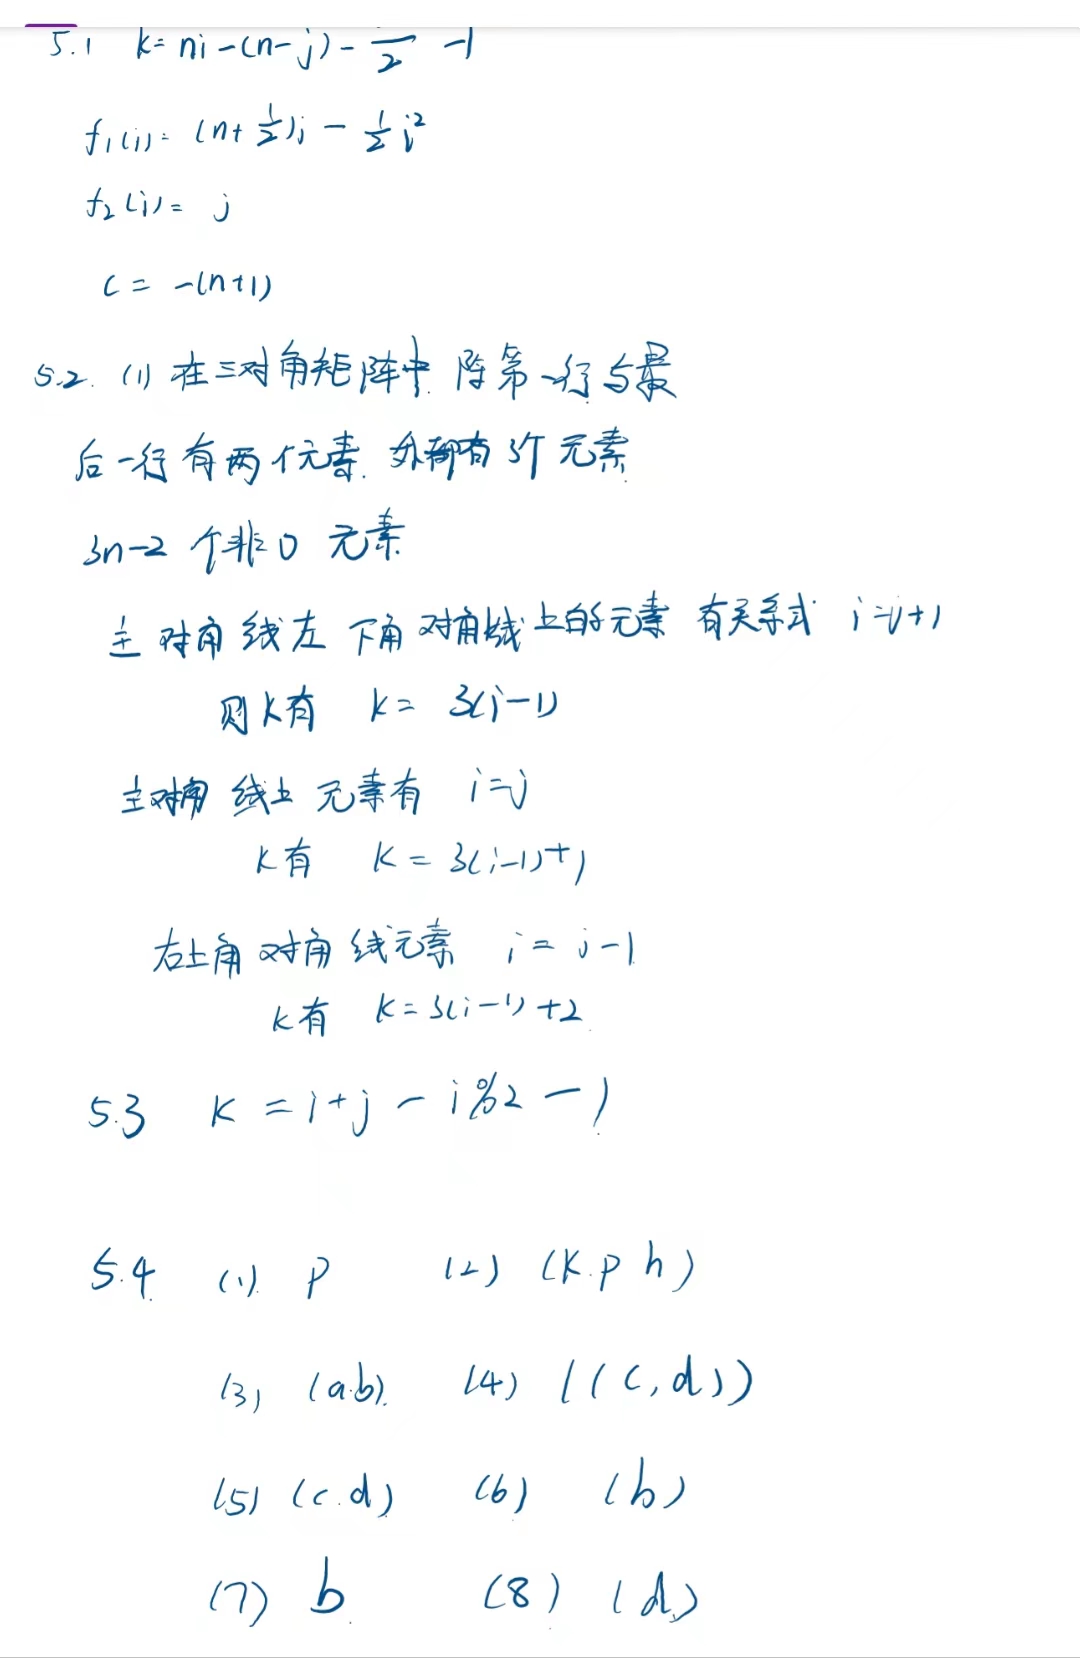 5.1 k= ni-(n-j)- /2 -1
f₁(i)= (n+½)i - ½i²
f₂(j)= j
c = -(n+1)
5.2. (1) 在三对角矩阵中 除第一行与最
后一行有两个元素. 外都有3个元素
3n-2 个非0 元素
主对角线左下角对角线上的元素 有关系式 i=j+1
则k有 k= 3(i-1)
主对角线上元素有 i=j
k有 k= 3(i-1)+1
右上角对角线元素 i = j-1
k有 k=3(i-1)+2
5.3 k = i+j - i%2 - 1
5.4 (1) p (2) (k.p h)
(3) (a.b). (4) ((c,d))
(5) (c.d) (6) (b)
(7) b (8) (d)